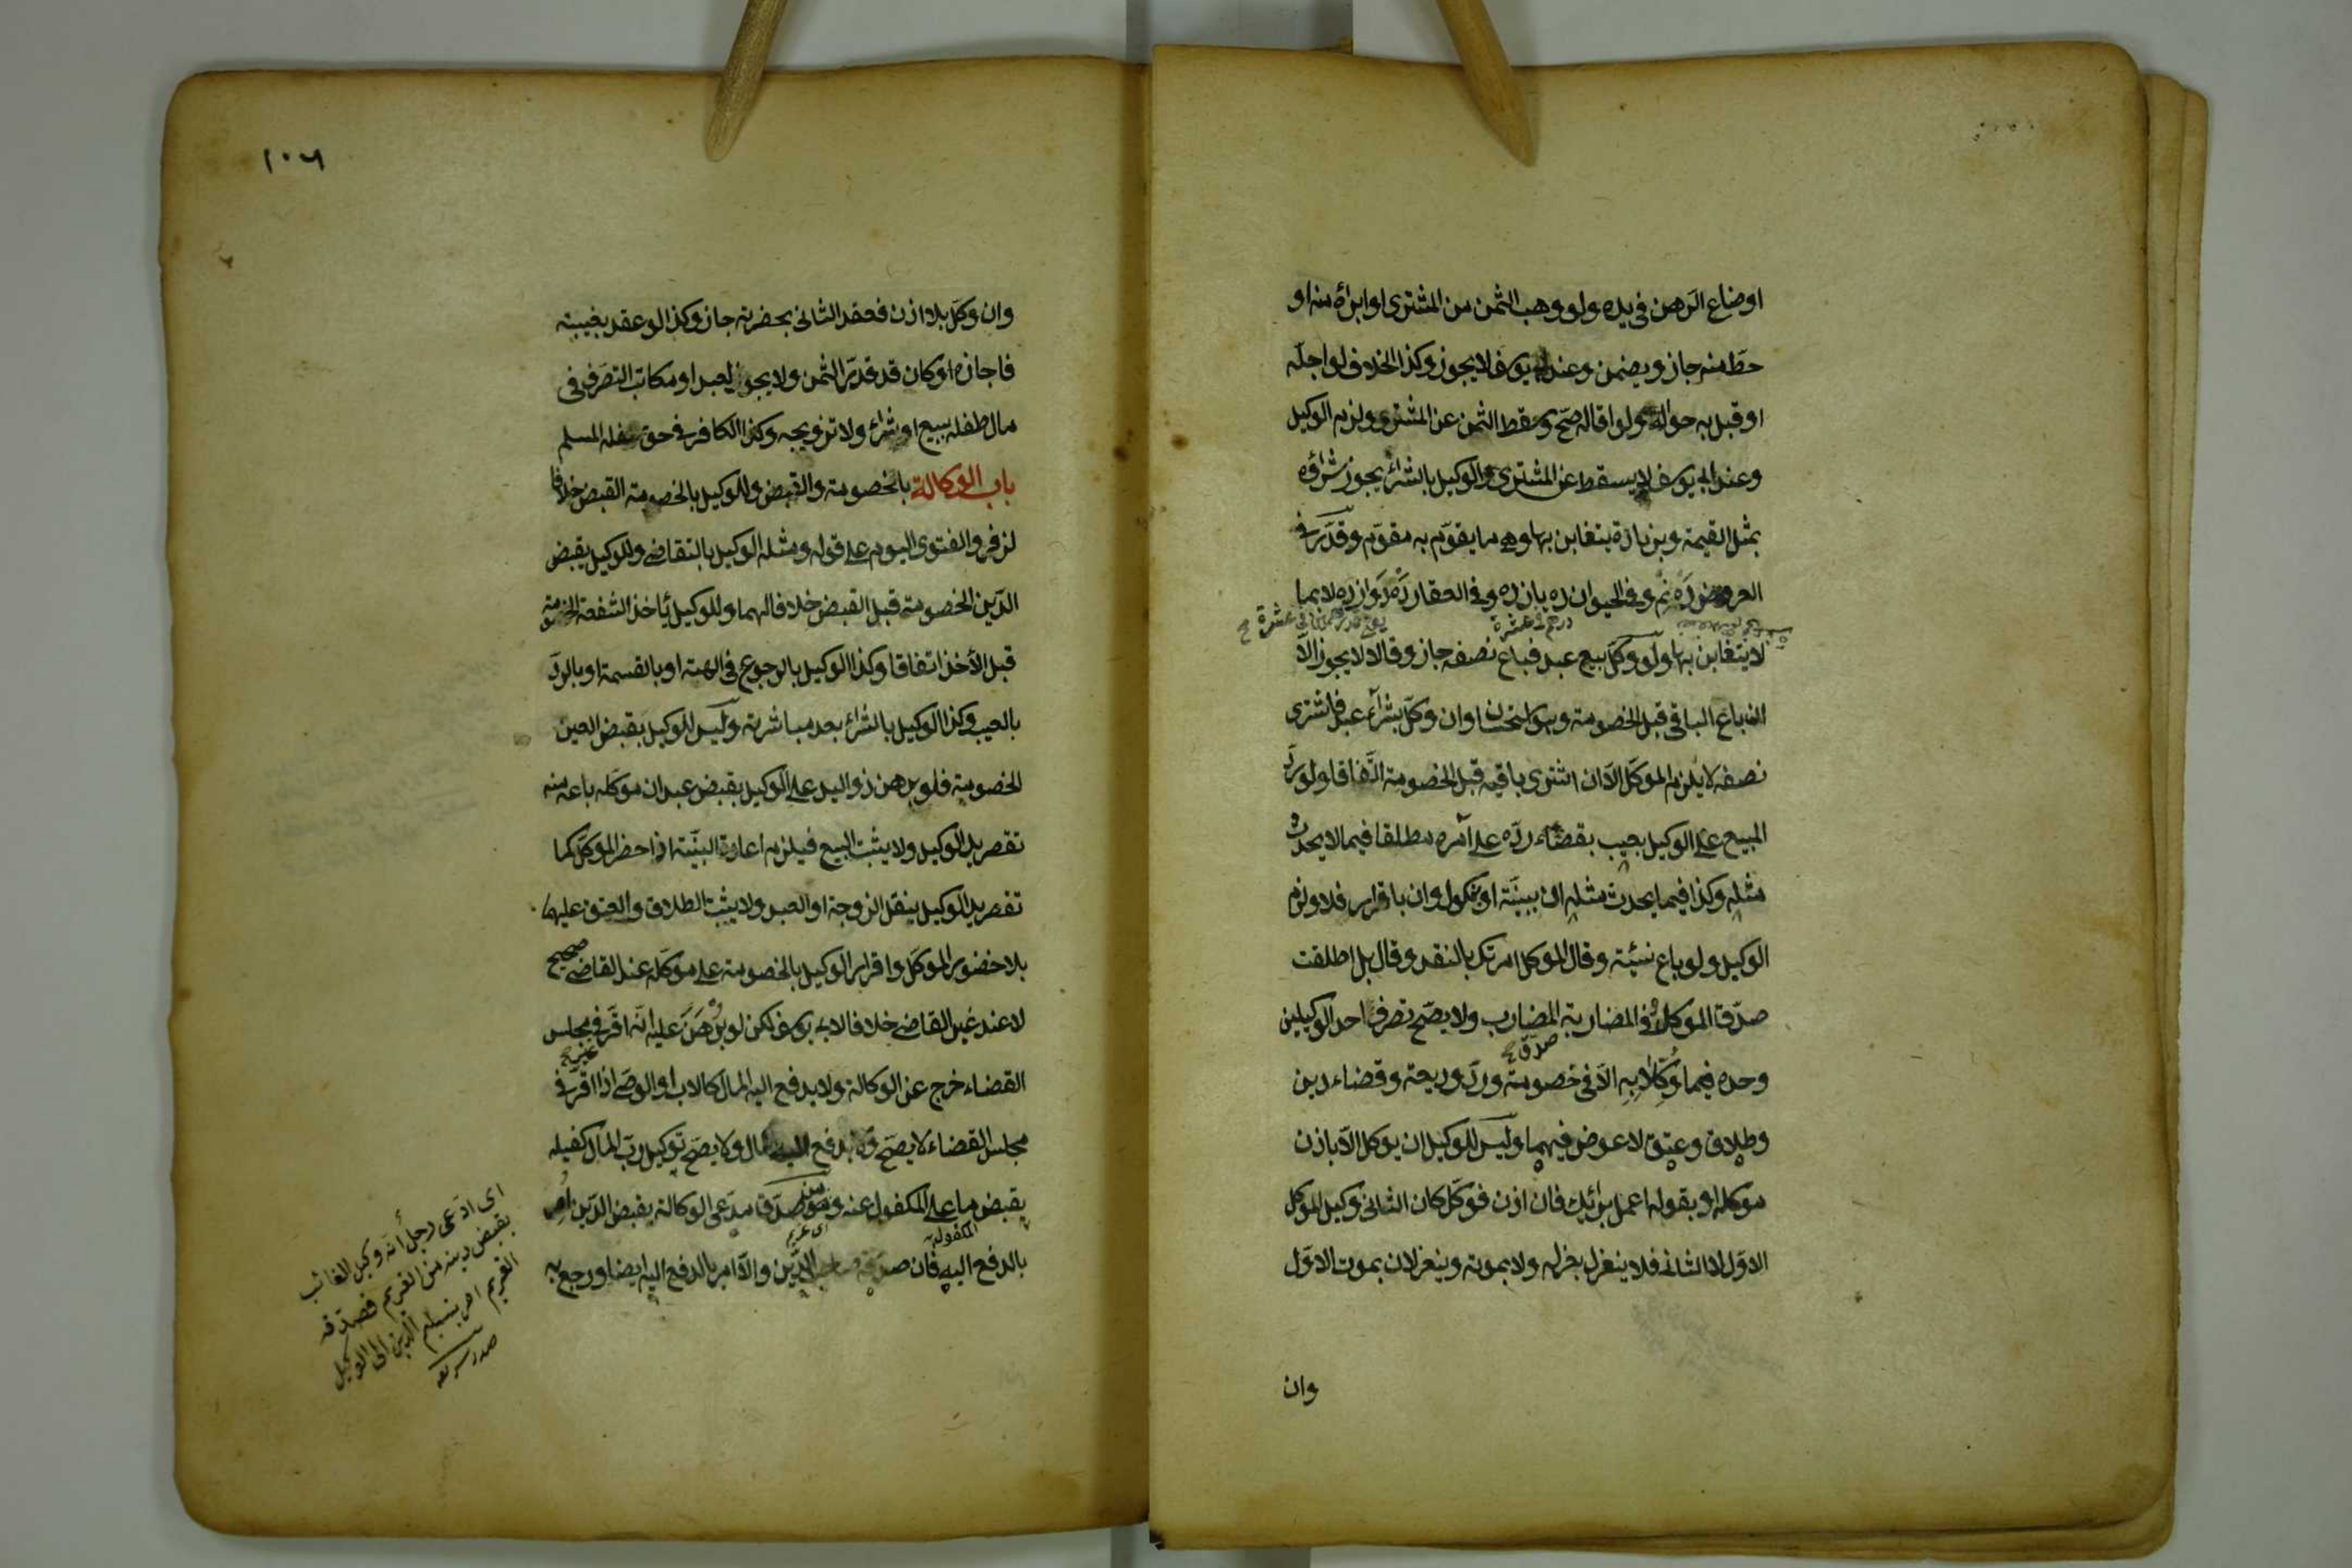 اوضاع الرهن في يده ولو وهب الثمن من المشترى او ابرأه منه او
حطّ منه جاز ويضمن وعند ابى يوسف لا يجوز وكذا الخلاف لو اجلّه
او قبل به حوالة ولو اقاله صحّ وسقط الثمن عن المشترى ولزم الوكيل
وعند ابى يوسف لا يسقط عن المشترى والوكيل بالشراء يجوز شراؤه
بمثل القيمة وبزيادة يتغابن بها وهى ما يقوّم به مقوّم وقدّر فى
العروض دَه نِيم وفى الحيوان ده يازده وفى العقار دَه دَوازده لا بما
درهم فى عشرة
لا يتغابن بها ولو وكّل ببيع عبد فباع نصفه جاز وقالا لا يجوز الّا
ان باع الباقى قبل الخصومة وهو استحسان وان وكّل بشرآء عبد فاشترى
نصفه لا يلزم الموكّل الّا ان اشترى باقيه قبل الخصومة اتّفاقا ولو ردّ
المبيع على الوكيل بعيب بقضاء ردّه على آمره مطلقا فيما لا يحدث
مثله وكذا فيما يحدث مثله ان ببينّة او نكول وان باقرار فلا ولزم
الوكيل ولو باع نسئة وقال الموكل امرتك بالنقد وقال بل اطلقت
صدّق الموكل وفى المضاربة المضارب ولا يصّح تصرف احد الوكيلين
صدّق
وحده فيما وُكِّلا بِهِ الّا فى خصومة وردّ وديعة وقضاء دين
وطلاق وعتق لا عوض فيهما وليس للوكيل ان يوكل الّا باذن
موكله او بقوله اعمل برائك فان اذن فوكّل كان الثانى وكيل الموكل
الاوّل لا الثانى فلا ينعزل بعزله ولا بموته وينعزلان بموت الاوّل
وان
١٠٦
وان وكّل بلا اذن فعقد الثانى بحضرته جاز وكذا لو عقد بغيبته
فاجازه او كان قد قدّر الثمن ولا يجوز لعبد او مكاتب التصرف فى
مال طفله ببيع او شراء ولا تزويجه وكذا الكافر فى حق طفله المسلم
باب الوكالة بالخصومة والقبض وللوكيل بالخصومة القبض خلافا
لزفر والفتوى اليوم على قوله ومثله الوكيل بالتقاضى وللوكيل بقبض
الدّين الخصومة قبل القبض خلافا لهما وللوكيل باخذ الشفعة الخصومة
قبل الأخذ اتفاقا وكذا الوكيل بالرجوع فى الهبة او بالقسمة او بالردّ
بالعيب وكذا الوكيل بالشراء بعد مباشرته وليس للوكيل بقبض العين
الخصومة فلو برهن ذو اليد على الوكيل بقبض عبد ان موكّله باعه منه
تقصر يد الوكيل ولا يثبت البيع فيلزم اعادة البيّنة اذا حضر الموكّل كما
تقصر يد الوكيل بنقل الزوجة او العبد ولا يثبت الطلاق والعتق عليهما
بلا حضور الموكّل واقرار الوكيل بالخصومة على موكّله عند القاضى صحيح
لا عند غير القاضى خلافا لابى يوسف لكن لو برْهَنَ عليه انّه اقرّ فى مجلس
غير
القضاء خرج عن الوكالة ولا يدفع اليه المال كالاب او الوصى اذا اقرّ فى
مجلس القضاء لا يصّح ولا يدفع اليه المال ولا يصّح توكيل ربّ المال كفيله
بقبض ما على المكفول عنه ومن صدّق مدّعى الوكالة بقبض الدّين امر
اى غريم
بالدفع اليه فان صدّقه صاحب الدّين والّا امر بالدفع اليه ايضا ورجع به
اى ادّعى رجل أنّه وكيل الغائب
بقبض دينه من الغريم فصدّقه
الغريم امر بتسليم الدين الى الوكيل